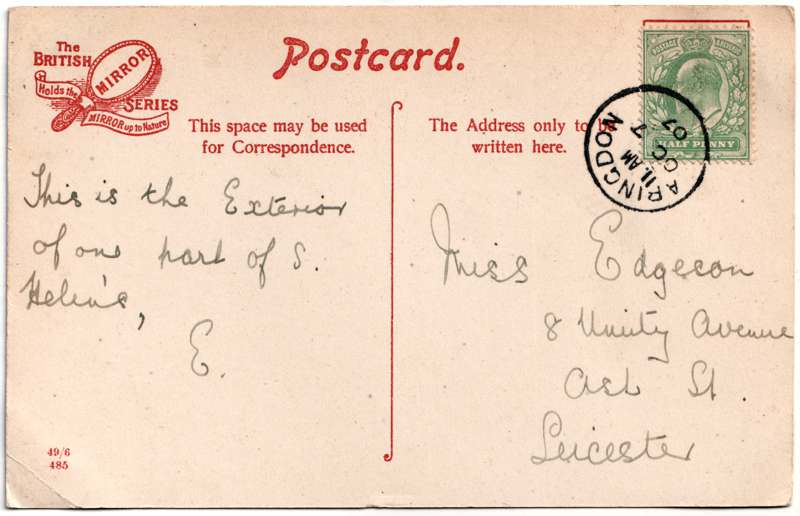 The
BRITISH
MIRROR
SERIES
Holds the
MIRROR up to Nature
Postcard.
This space may be used
for Correspondence.
The Address only to be
written here.
POSTAGE REVENUE
HALF PENNY
ABINGDON
11 AM
OC 7
07
This is the Exterior
of one part of S.
Helen's,
E.
Miss Edgecon
8 Unity Avenue
Ash St
Leicester
49/6
485